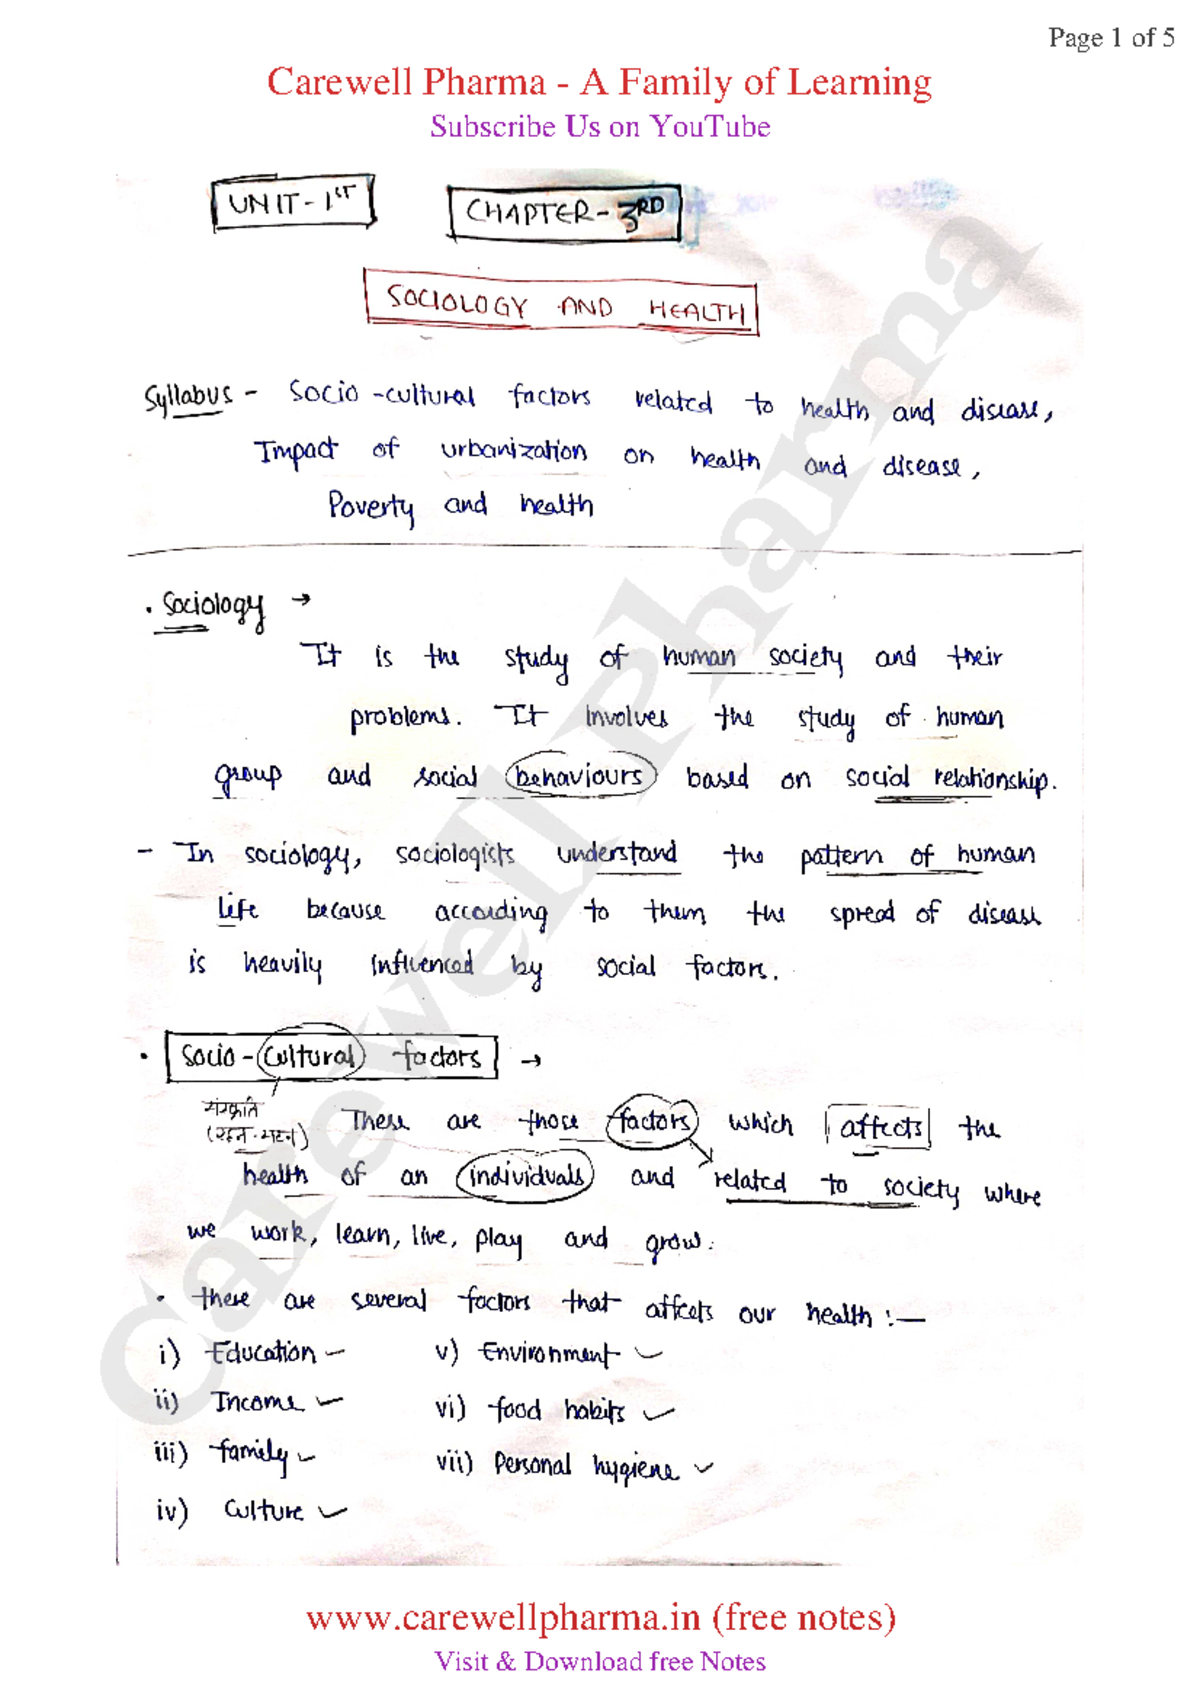 Page 1 of 5
Carewell Pharma - A Family of Learning
Subscribe Us on YouTube
UNIT-1ST CHAPTER-3RD
SOCIOLOGY AND HEALTH
Syllabus - Socio-cultural factors related to health and disease,
Impact of urbanization on health and disease,
Poverty and health
• Sociology →
It is the study of human society and their
problems. It involves the study of human
group and social behaviours based on social relationship.
- In sociology, sociologists understand the pattern of human
Life because according to them the spread of disease
is heavily influenced by social factors.
• Socio-Cultural factors →
संस्कृति
(रहन-सहन) These are those factors which affects the
health of an individuals and related to society where
we work, learn, live, play and grow.
• there are several factors that affects our health :—
i) Education – v) Environment ✓
ii) Income ✓ vi) food habits ✓
iii) family ✓ vii) Personal hygiene ✓
iv) Culture ✓
Carewell Pharma
www.carewellpharma.in (free notes)
Visit & Download free Notes